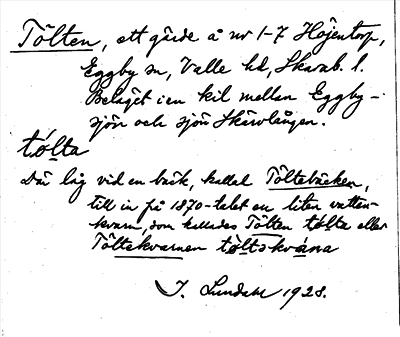 Tölten, ett gärde å nr 1-7 Höjentorp,
Eggby sn, Valle hd, Skarab. l.
Beläget i en kil mellan Eggby-
sjön och sjön Skärvlången.
tólta
Där låg vid en bäck, kallad Töltebäcken,
till in på 1870-talet en liten vatten-
kvarn, som kallades Tölten tólta eller
Töltekvarnen tóltskvána
J. Lundahl 1928.